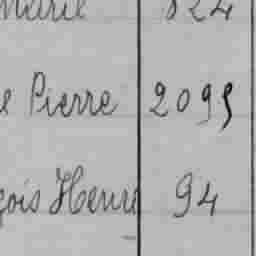 Marie 824
e Pierre 2095
çois Henri 94